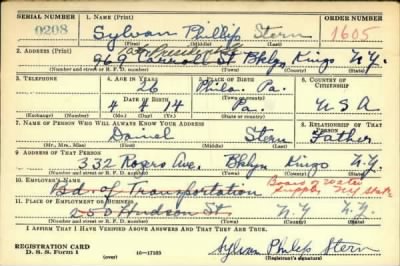 SERIAL NUMBER 1. NAME (Print) ORDER NUMBER
0208 Sylvan Phillip Stern 1605
(First) (Middle) (Last)
2. ADDRESS (Print)
President
969 St Bklyn Kings N.Y.
(Number and street or R. F. D. number) (Town) (County) (State)
3. TELEPHONE 4. AGE IN YEARS 5. PLACE OF BIRTH 6. COUNTRY OF CITIZENSHIP
26 Phila. Pa.
DATE OF BIRTH (Town or county)
4 8 14 Pa. USA
(Exchange) (Number) (Mo.) (Day) (Yr.) (State or country)
7. NAME OF PERSON WHO WILL ALWAYS KNOW YOUR ADDRESS 8. RELATIONSHIP OF THAT PERSON
Daniel Stern Father
(Mr., Mrs., Miss) (First) (Middle) (Last)
9. ADDRESS OF THAT PERSON
332 Rogers Ave. Bklyn Kings N.Y.
(Number and street or R. F. D. number) (Town) (County) (State)
10. EMPLOYER'S NAME
Bd. of Transportation Board of Water Supply NY State
11. PLACE OF EMPLOYMENT OR BUSINESS
253 Hudson St N.Y N.Y.
(Number and street or R. F. D. number) (Town) (County) (State)
I AFFIRM THAT I HAVE VERIFIED ABOVE ANSWERS AND THAT THEY ARE TRUE.
REGISTRATION CARD
D. S. S. Form 1 (over) 16—17105 Sylvan Philip Stern
(Registrant's signature)